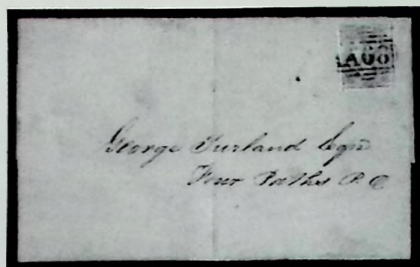 A68
George Turland Esqr
Four Paths P.O